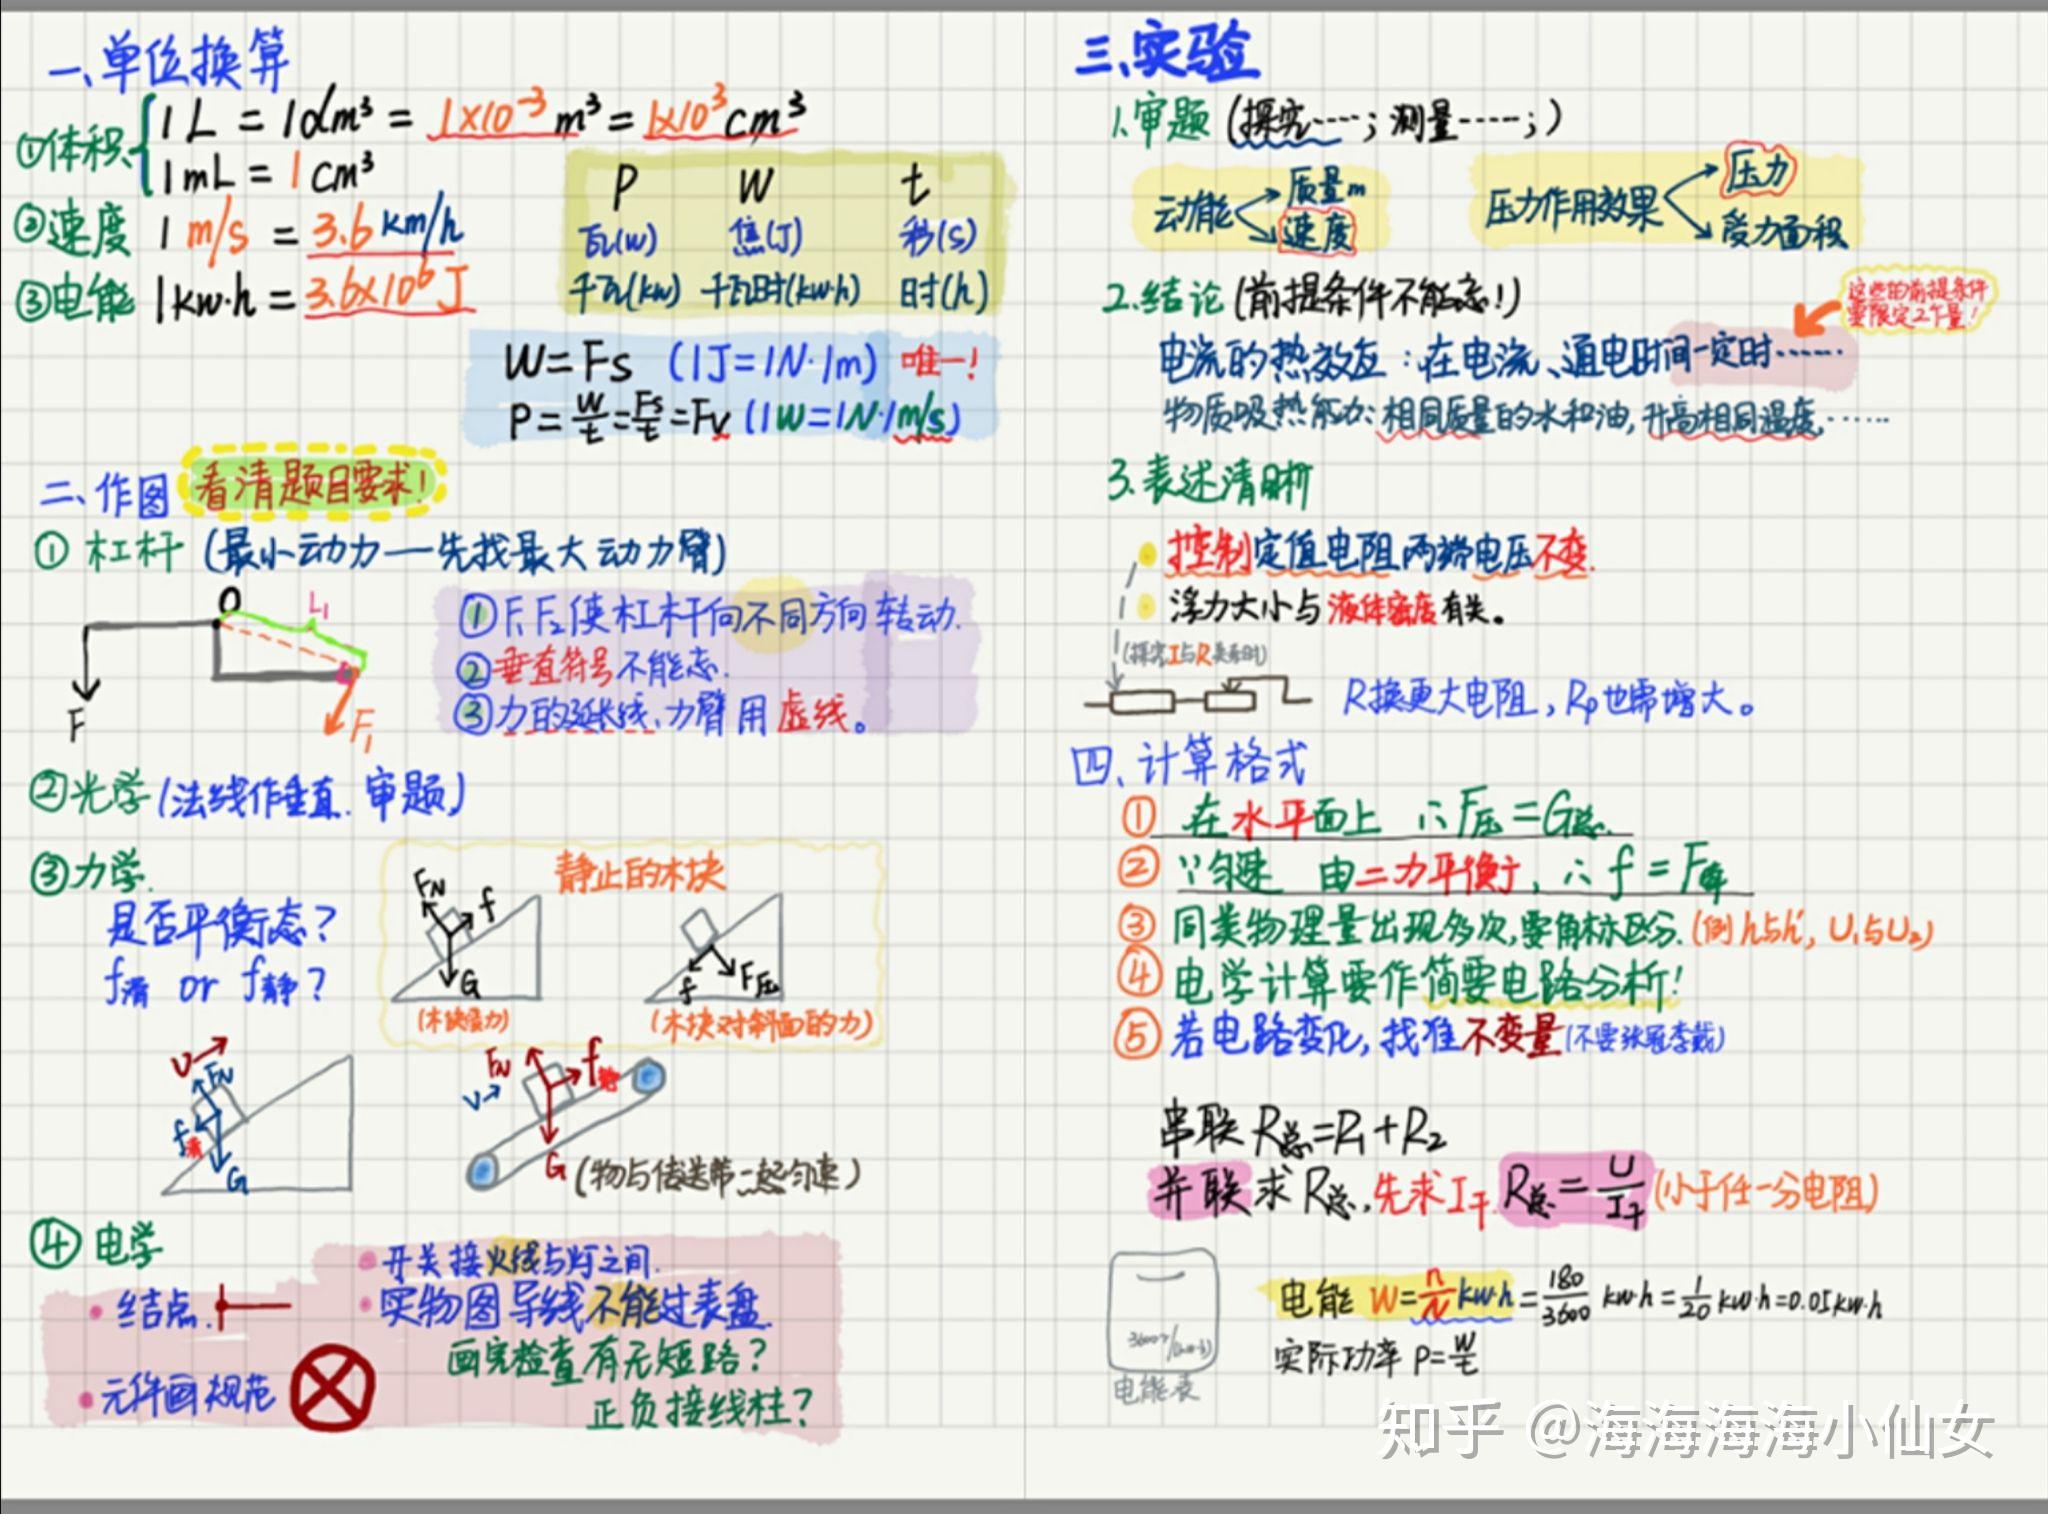 一、单位换算
①体积 1L = 1dm³ = 1×10⁻³m³ = 1×10³cm³
1mL = 1cm³
②速度 1 m/s = 3.6 km/h
③电能 1kw·h = 3.6×10⁶J
P W t
瓦(w) 焦(J) 秒(s)
千瓦(kw) 千瓦时(kw·h) 时(h)
W=Fs (1J=1N·1m) 唯一!
P=W/t=Fs/t=Fv (1W=1N·1m/s)
二、作图 看清题目要求!
① 杠杆 (最小动力——先找最大动力臂)
O L₁
F F₁
①F₁F₂使杠杆向不同方向转动.
②垂直符号不能忘.
③力的延长线、力臂用虚线。
②光学(法线作垂直.审题)
③力学.
是否平衡态?
f滑 or f静?
静止的木块
F_N f G
f F压
(木块受力) (木块对斜面的力)
v F_N f滑 G
F_N f静 v G
(物与传送带一起匀速)
④ 电学
结点.
元件画规范
开关接火线与灯之间.
实物图导线不能过表盘.
画完检查有无短路?
正负接线柱?
三、实验
1.审题(探究……;测量……;)
动能 质量m 速度
压力作用效果 压力 受力面积
2.结论(前提条件不能忘!)
这些的前提条件要限定2个量!
电流的热效应:在电流、通电时间一定时……
物质吸热能力:相同质量的水和油,升高相同温度,……
3.表述清晰
控制定值电阻两端电压不变.
浮力大小与液体密度有关。
(探究I与R关系时)
R换更大电阻,Rp也需增大。
四、计算格式
① 在水平面上 ∴F压=G总.
② ∵匀速 由二力平衡, ∴f=F牵
③ 同类物理量出现多次,要角标区分.(例h与h′,U₁与U₂)
④ 电学计算要作简要电路分析!
⑤ 若电路变化,找准不变量(不要张冠李戴)
串联R总=R₁+R₂
并联求R总,先求I干. R总=U/I干 (小于任一分电阻)
3600r/(kw·h)
电能表
电能 W=n/N kw·h=180/3600 kw·h=1/20 kw·h=0.05kw·h
实际功率 P=W/t
知乎 @海海海海小仙女